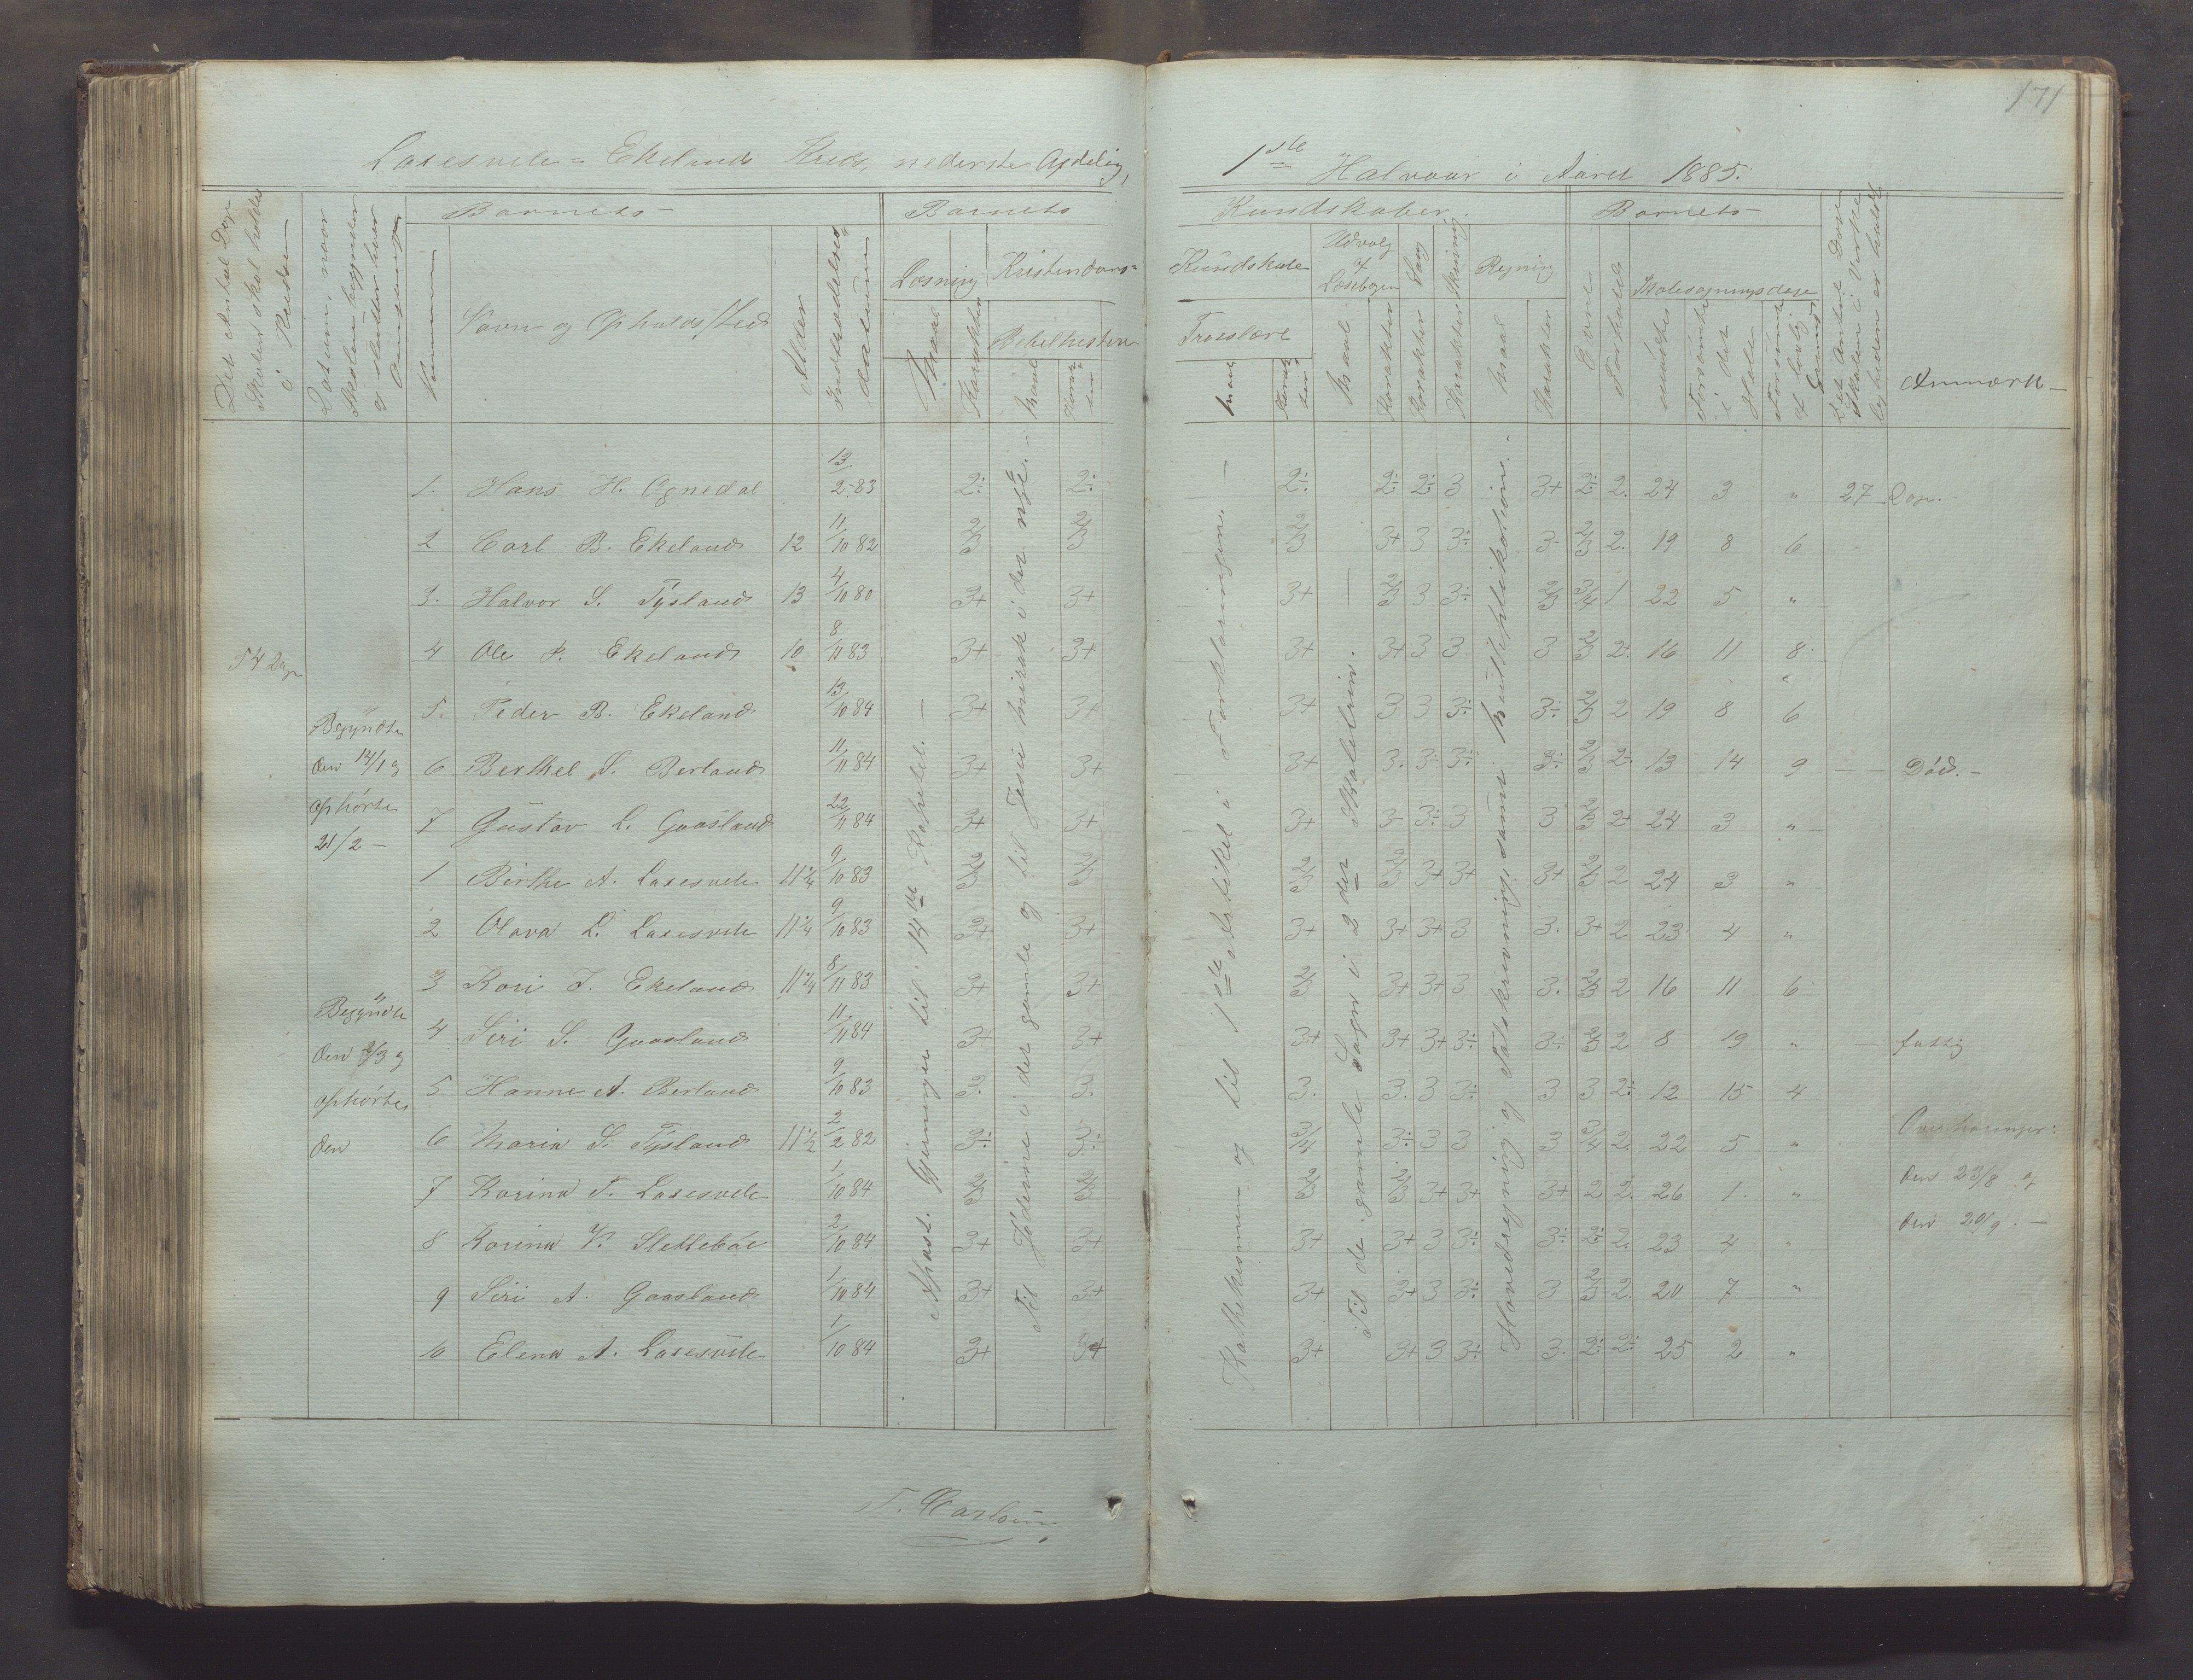 171
Laxesvele = Ekelands Kreds, nederste Afdeling,
1ste Halvaar i Aaret 1885.
Det Antal Dage Skolen skal holdes i Kredsen
Datum, naar Skolen begynder og slutter hver Omgang
Barnets
Nummer
Navn og Opholds Sted
Alder
Indtrædelses datum
Barnets
Læsning
Maal
Karakter
Kristendoms=
Bibelhistorie
Maal
Karak ter
Kundskaber.
Kundskab
Troeslære
Maal
Karak ter
Udvalg af Læsebogen
Maal
Karakter
Sang
Karakter
Skrivning
Karakter
Regning
Maal
Karakter
Barnets
Evne
Forhold
Skolesøgningsdage
mødte
Forsømte i det Hele
Forsømte af lovlig Grund
Det Antal Dage Skolen i Virke ligheden er holdt
Anmærk
54 Dage
Begyndte
den 14/1 og
ophørte
21/2 –
Begyndte
den 2/3 og
ophørtes
den
1. Hans H. Ognedal 13/2 83 2÷ 2÷ 2÷ 2÷ 2÷ 3 3+ 2÷ 2. 24 3 " 27 Dage.
2 Carl B. Ekeland 12 11/10 82 2/3 2/3 2/3 3+ 3 3÷ 3- 2/3 2. 19 8 6
3. Halvor S. Tysland 13 4/10 80 3+ 3+ 3+ 2/3 3 3÷ 2/3 3/4 1 22 5 "
4 Ole P. Ekeland 10 8/11 83 3+ 3+ 3+ 3+ 3 3 3 2/3 2+ 16 11 8
5. Peder B. Ekeland 13/10 84 3+ 3+ 3+ 3 3 3÷ 3÷ 2/3 2 19 8 6
6 Berthel S. Berland 11/11 84 3+ 3+ 3+ 3. 3- 3÷ 3÷ 2/3 2÷ 13 14 9 – – Død. –
7 Gustav L. Gaasland 22/11 84 3+ 3+ 3+ 3- 3÷ 3 3 2/3 2+ 24 3 "
1 Birthe A. Laxesvele 11 1/4 9/10 83 2/3 2/3 2/3 2/3 3+ 3+ 3+ 2/3 2 24 3 "
2 Olava L. Laxesvele 11 1/4 9/10 83 3+ 3+ 3+ 3+ 3+ 3 3. 3+ 2 23 4 "
3 Kari J. Ekeland 11 1/4 8/11 83 3+ 3+ 2/3 3+ 3+ 3 3. 2/3 2 16 11 6
4 Siri S. Gaasland 11/11 84 3+ 3+ 3+ 3+ 3+ 3÷ 3÷ 2/3 2 8 19 " fattig
5 Hanne A. Berland 9/10 83 3. 3. 3. 3. 3 3÷ 3 3 2÷ 12 15 4
6 Maria S. Tysland 11 1/2 2/2 82 3÷ 3÷ 3/4 3÷ 3 3 3 3/4 2. 22 5 "
7 Karina T. Laxesvele 1/10 84 2/3 2/3 2/3 2/3 3+ 3+ 3+ 2 2. 26 1 "
8 Karina V. Slettebøe 2/10 84 3+ 3+ 3+ 3+ 3 3÷ 3÷ 2÷ 2. 23 4 "
9 Siri A. Gaasland 1/10 84 3+ 3+ 3+ 3+ 3 3÷ 3 2/3 2. 20 7 "
10 Elena A. Laxesvele 1/10 84 3+ 3+ 3+ 3+ 3 3÷ 3. 2÷ 2÷ 25 2 "
Apost. Gjerninger til 14de Kapitel. –
Til Jøderne i det gamle og til Jesu mirak i det nye. –
Katekismen og til 1ste Artikel i Forklaringen. –
Til de gamle Sagn i 2det Skoletrin. –
Hovedregning og Talskrivning samt Multiplikation. –
Overhøringer:
den 23/8 og
den 20/9. –
T. Carlsen